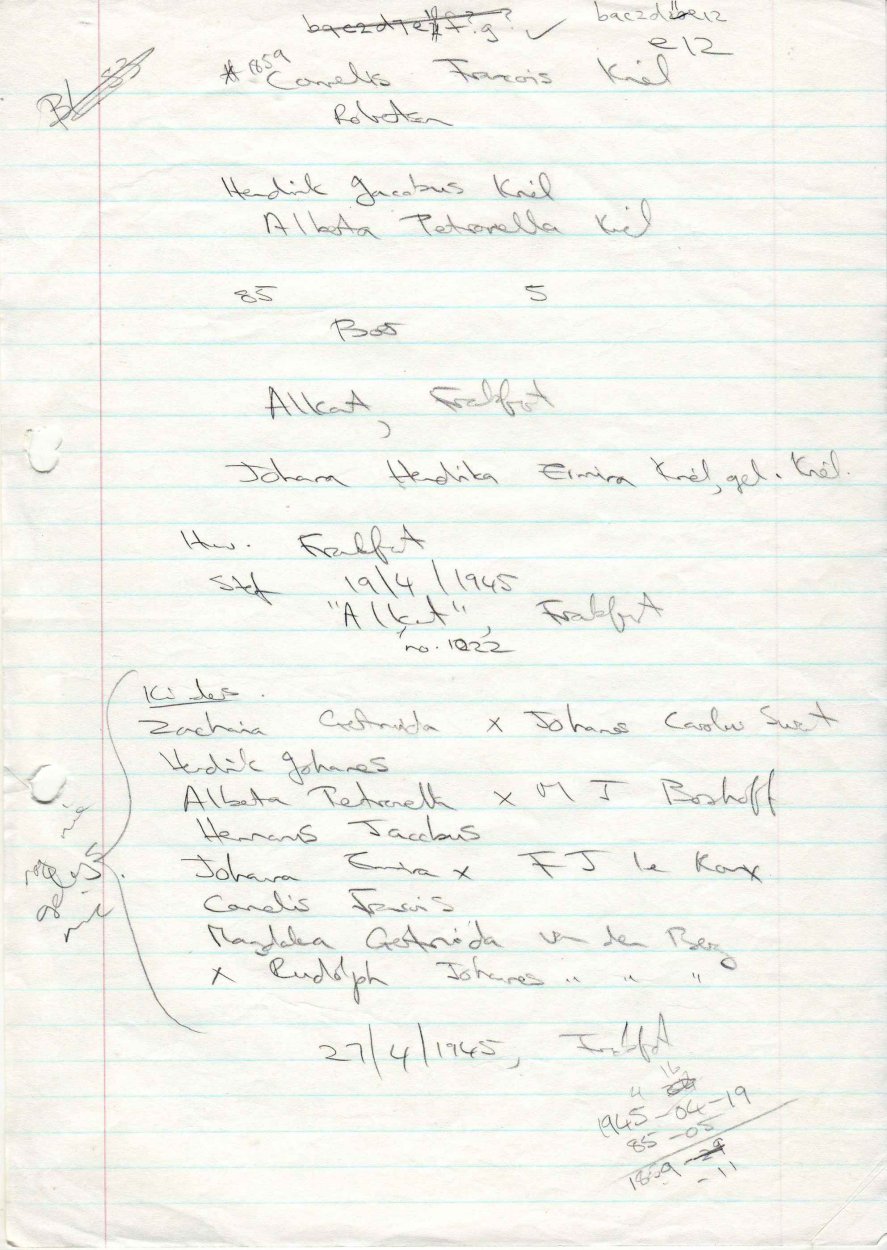 baczd2be12
e12
Bl 53
* 1859
Cornelis Francois Kriel
Robertson
Hendrik Jacobus Kriel
Alberta Petronella Kriel
85 5
Boer
Allkat, Frankfort
Johanna Hendrika Ermira Kriel, geb. Kriel.
Huw. Frankfort
Sterf 19/4/1945
"Allkat", Frankfort
no. 1022
Kinders.
Zacharia Gertruida x Johannes Carolus Swart
Hendrik Johannes
Alberta Petronella x M J Boshoff
Hermanus Jacobus
Johanna Ermira x F J le Roux
Cornelis Francois
Magdalena Gertruida van den Berg
x Rudolph Johannes " " "
nie
nie
27/4/1945, Frankfort
1945-04-19
85-05
1859
-11